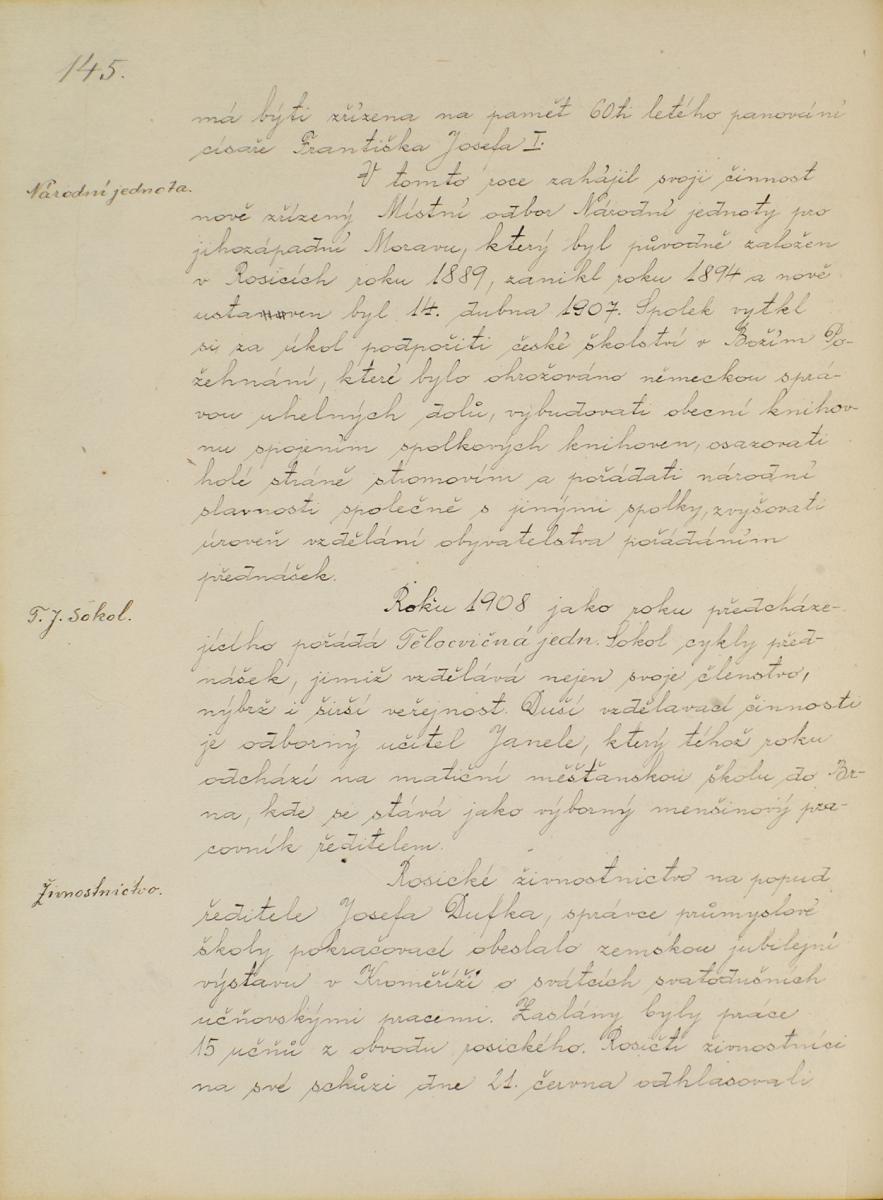 145.
má býti zřízena na paměť 60ti letého panování
císaře Františka Josefa I.
Národní jednota.
V tomto roce zahájil svoji činnost
nově zřízený Místní odbor Národní jednoty pro
jihozápadní Moravu, který byl původně založen
v Rosicích roku 1889, zanikl roku 1894 a nově
ustanoven byl 14. dubna 1907. Spolek vytkl
si za úkol podpořiti české školství v Božím Po-
žehnání, které bylo ohrožováno německou sprá-
vou uhelných dolů, vybudovati obecní knihov-
nu spojením spolkových knihoven, osazovati
holé stráně stromovím a pořádati národní
slavnosti společně s jinými spolky, zvyšovati
úroveň vzdělání obyvatelstva pořádáním
přednášek.
T. J. Sokol.
Roku 1908 jako roku předcháze-
jícího pořádá Tělocvičná jedn. Sokol cykly před-
nášek, jimiž vzdělává nejen svoje členstvo,
nýbrž i širší veřejnost. Duší vzdělavací činnosti
je odborný učitel Janele, který téhož roku
odchází na matiční měšťanskou školu do Br-
na, kde se stává jako výborný menšinový pra-
covník ředitelem.
Živnostnictvo.
Rosické živnostnictvo na popud
ředitele Josefa Dufka, správce průmyslové
školy pokračovací obeslalo zemskou jubilejní
výstavu v Kroměříži o svátcích svatodušních
učňovskými pracemi. Zaslány byly práce
15 učňů z obvodu rosického. Rosičtí živnostníci
na své schůzi dne 21. června odhlasovali